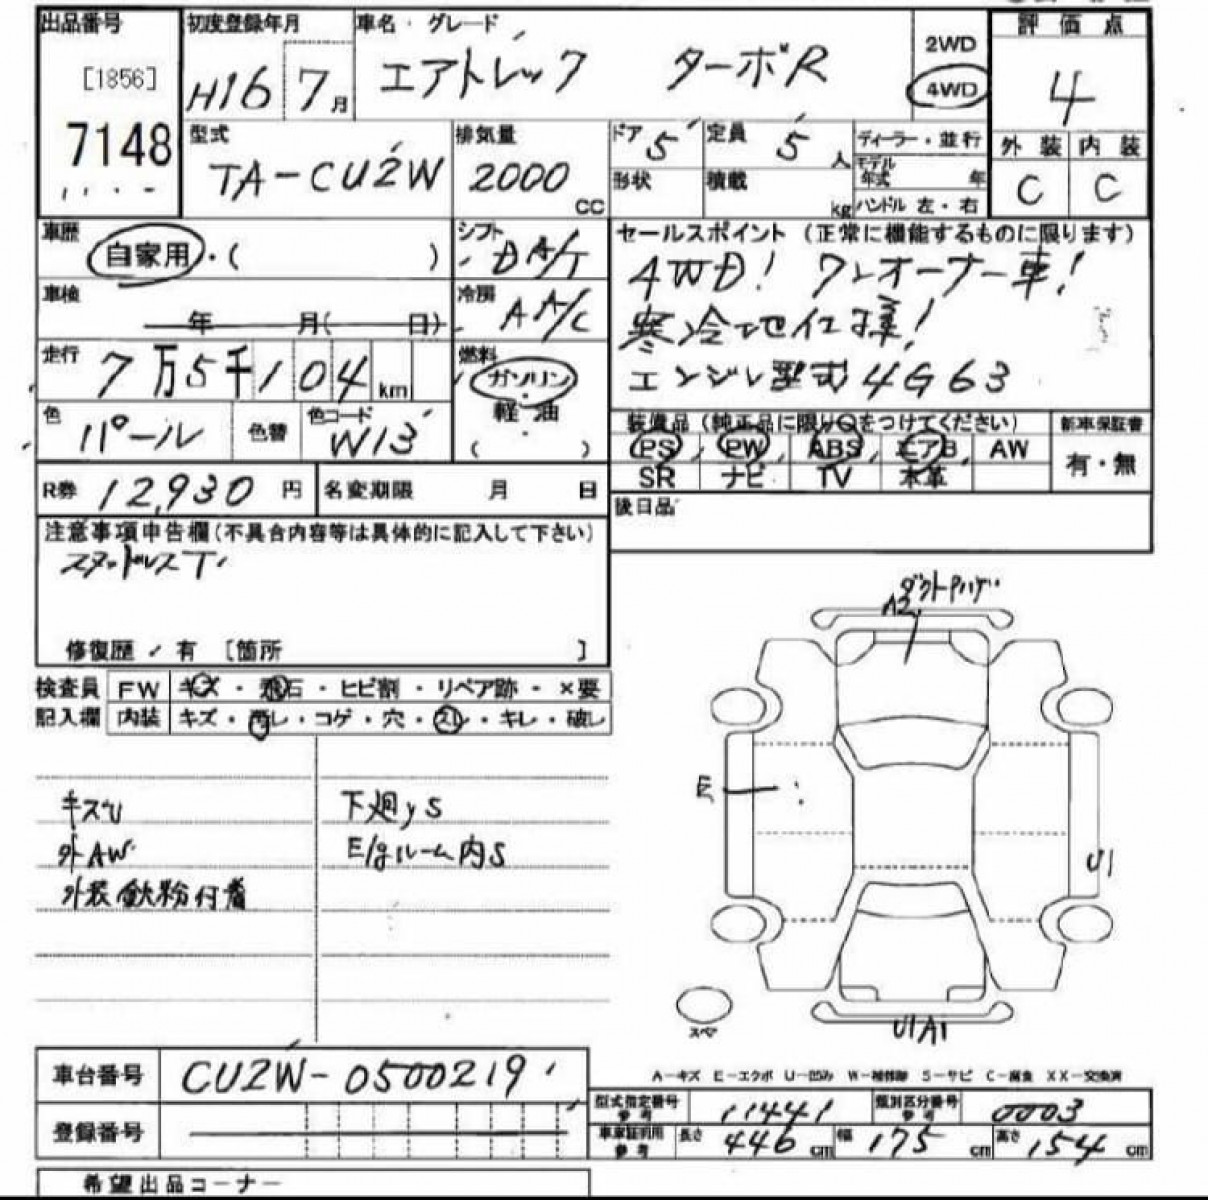 出品番号 初度登録年月 車名・グレード 評価点
[1856] H16 7月 エアトレック ターボR 2WD 4WD 4
7148 型式 排気量 ドア 5 定員 5人 ディーラー・並行 外装 内装
TA-CU2W 2000 CC 形状 積載 kg モデル年式 年 C C
ハンドル 左・右
車歴 自家用・( ) シフト D A/T セールスポイント(正常に機能するものに限ります)
4WD! ワンオーナー車!
車検 年 月( 日) 冷房 A A/C 寒冷地仕様車!
走行 7万5千104km 燃料 ガソリン エンジン型式4G63
軽油
( )
色 パール 色替 色コード W13 装備品(純正品に限り○をつけてください) 新車保証書
PS PW ABS エアB AW 有・無
R券 12,930円 名変期限 月 日 SR ナビ TV 本革
後日品
注意事項申告欄(不具合内容等は具体的に記入して下さい)
スタッドレスT
修復歴 有 [箇所 ]
検査員 FW キズ・飛石・ヒビ割・リペア跡・×要
記入欄 内装 キズ・汚レ・コゲ・穴・スレ・キレ・破レ
ダクトPハゲ
A2
キズU 下廻りS E
外AW E/gルーム内S U1
外装鉄粉付着
スペア
U1A1
車台番号 CU2W-0500219
A-キズ E-エクボ U-凹み W-補修跡 S-サビ C-腐食 XX-交換済
登録番号 型式指定番号 参考 11441 類別区分番号 参考 0003
車庫証明用 参考 長さ 446cm 幅 175cm 高さ 154cm
希望出品コーナー